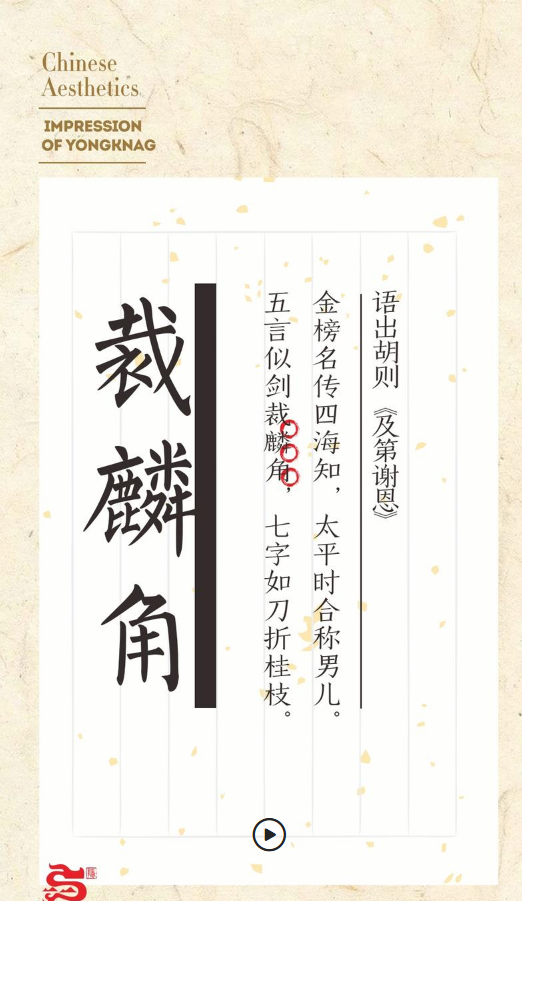 Chinese
Aesthetics
IMPRESSION
OF YONGKNAG
语出胡则《及第谢恩》
金榜名传四海知，太平时合称男儿。
五言似剑裁麟角，七字如刀折桂枝。
裁麟角